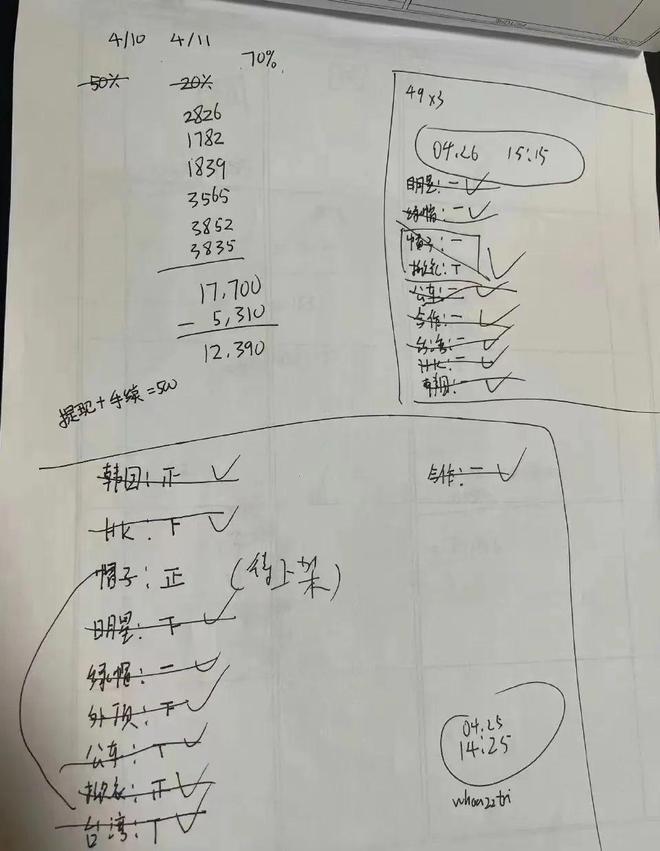 4/10 4/11
70%
50% 20%
2826
1782
1839
3565
3852
3835
17,700
- 5,310
12,390
提现+手续=500
49x3
04.26 15:15
明星:一✓
绿帽:一✓
帽子:一
T✓
公车:一✓
合作:一✓
台湾:一✓
HK:一✓
韩国:一✓
韩国:正✓
合作:一✓
HK:下✓
帽子:正 (待上架)
明星:下✓
绿帽:一✓
外项:下✓
公车:T✓
正✓
台湾:T✓
04.25
14:25